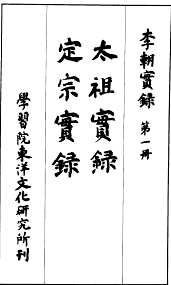 李朝實録 第一冊
太祖實録
定宗實録
學習院東洋文化研究所刊